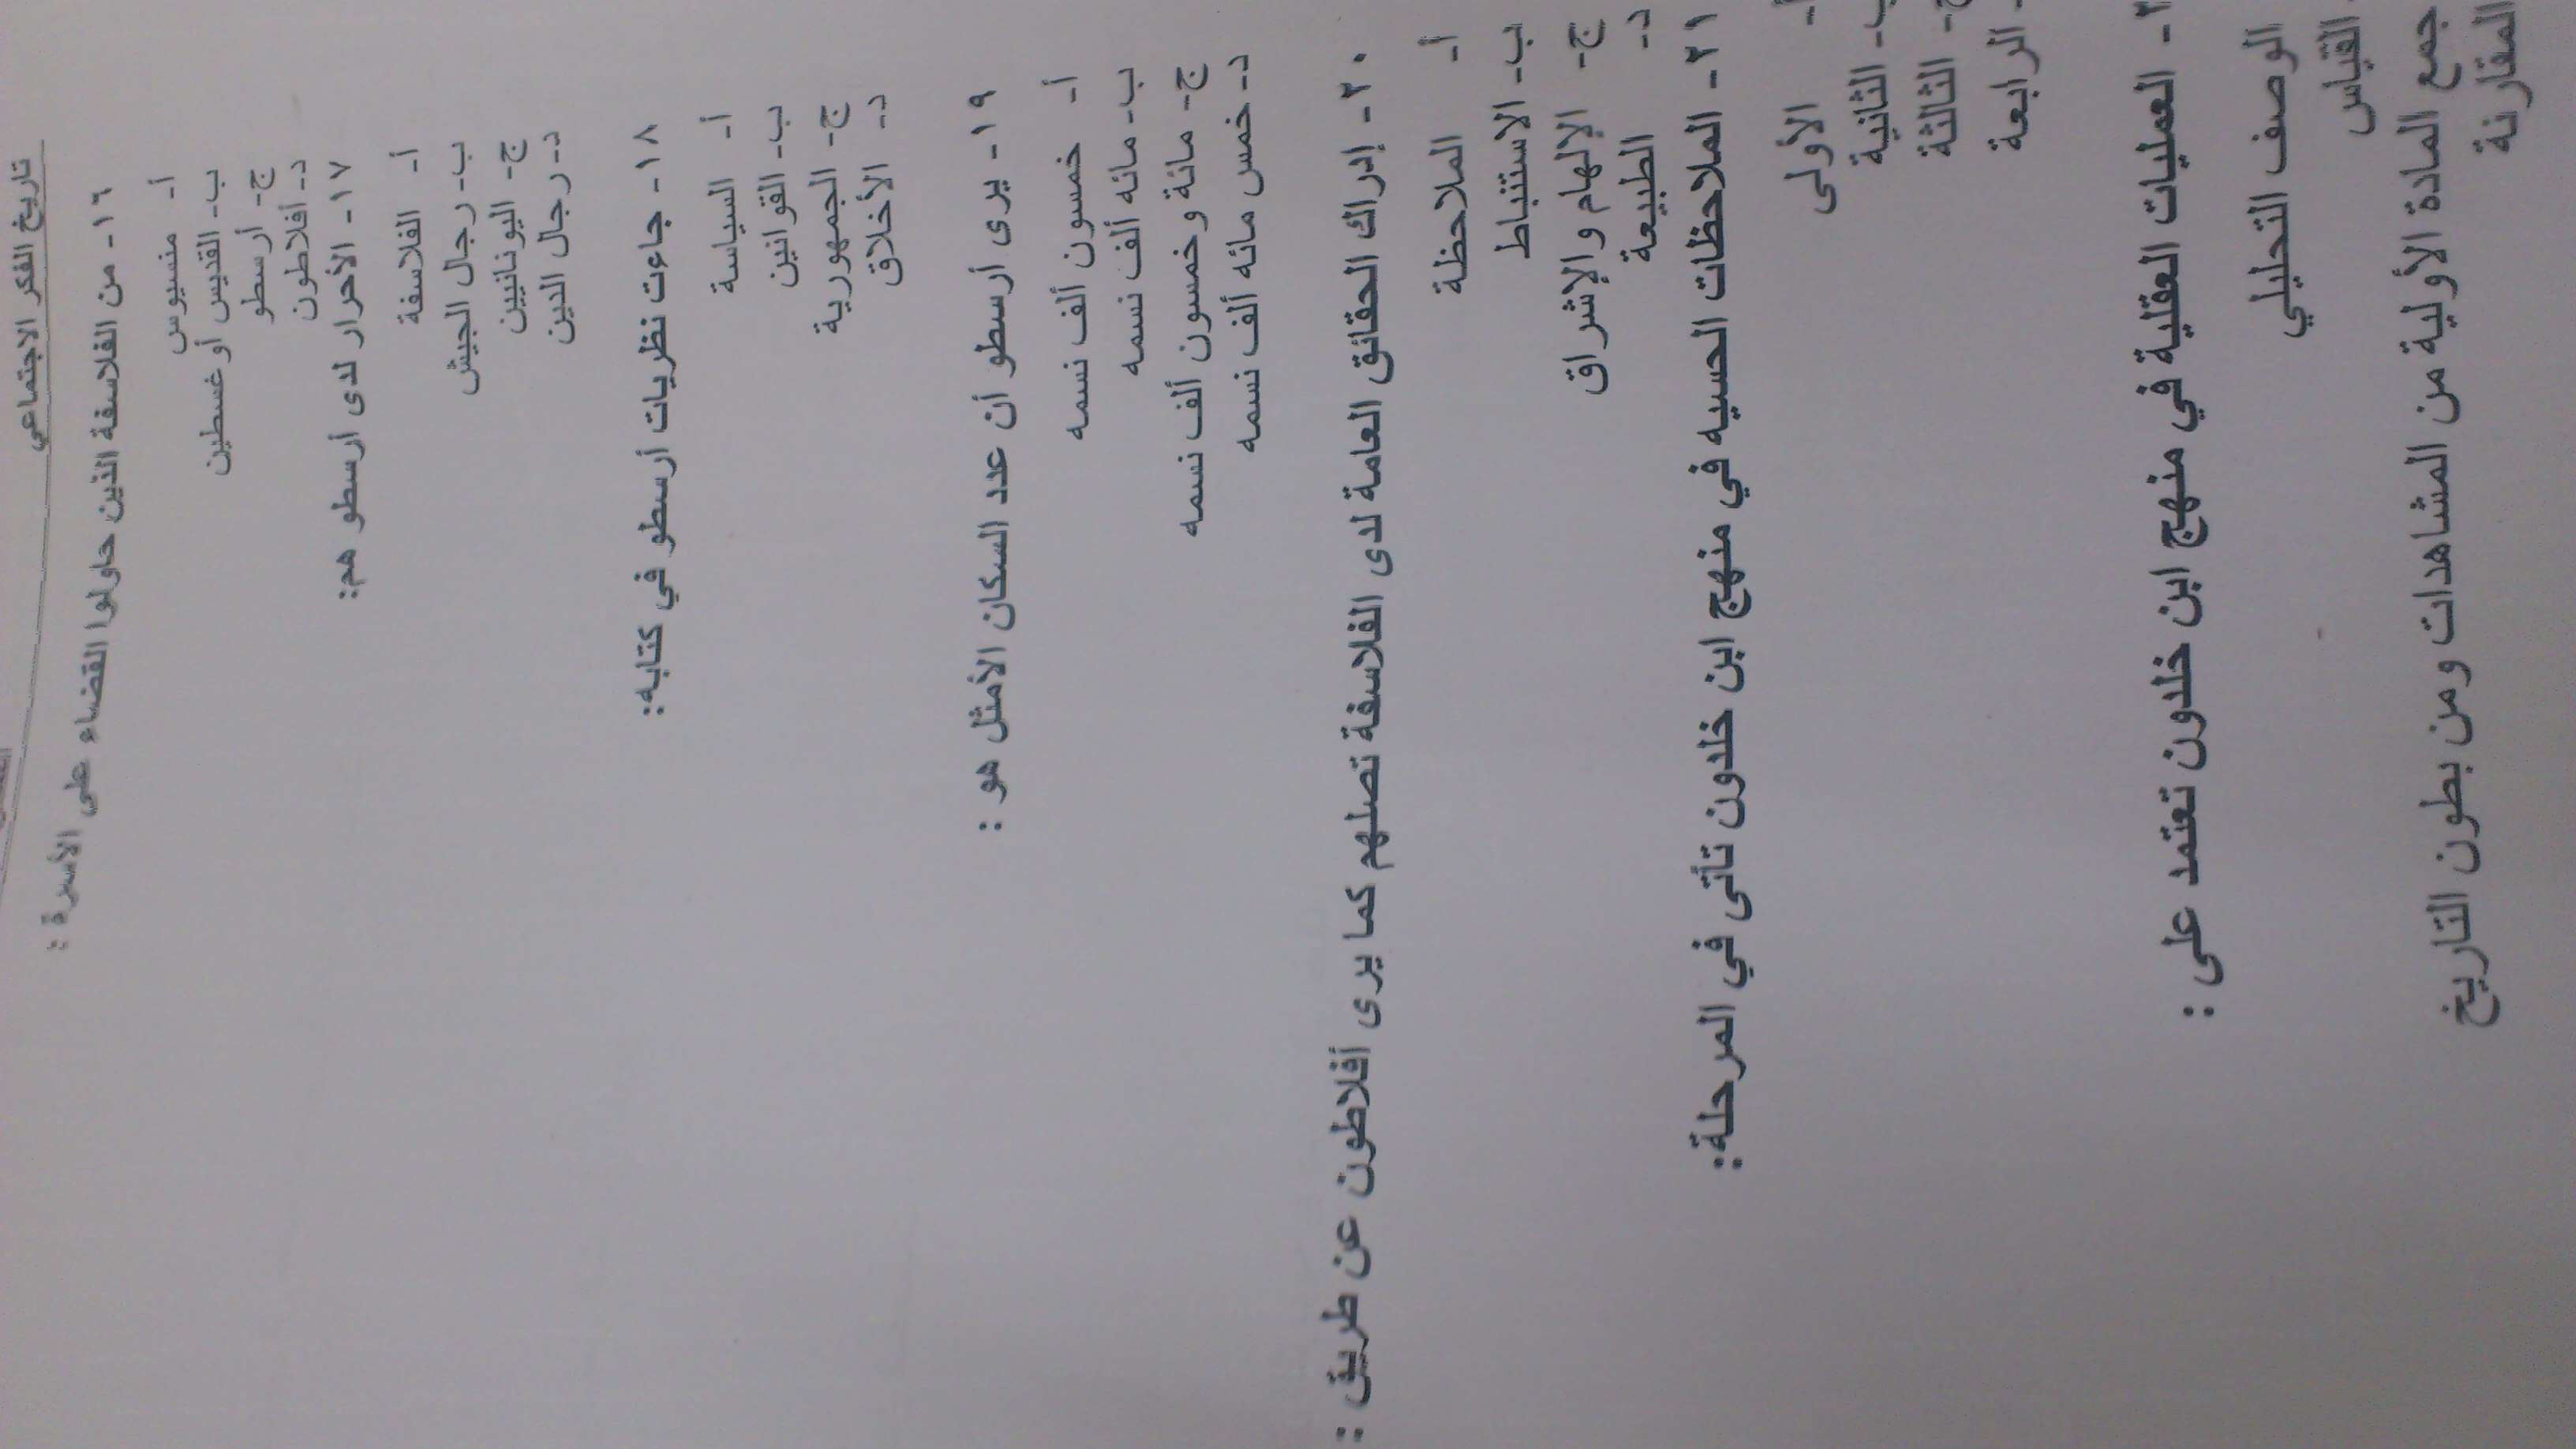 تاريخ الفكر الاجتماعي
١٦- من الفلاسفة الذين حاولوا القضاء على الأسرة :
أ- منسيوس
ب- القديس أوغسطين
ج- أرسطو
د- أفلاطون
١٧- الأحرار لدى أرسطو هم:
أ- الفلاسفة
ب- رجال الجيش
ج- اليونانيين
د- رجال الدين
١٨- جاءت نظريات أرسطو في كتابه:
أ- السياسة
ب- القوانين
ج- الجمهورية
د- الأخلاق
١٩- يرى أرسطو أن عدد السكان الأمثل هو :
أ- خمسون ألف نسمه
ب- مائه ألف نسمه
ج- مائة وخمسون ألف نسمه
د- خمس مائه ألف نسمه
٢٠- إدراك الحقائق العامة لدى الفلاسفة تصلهم كما يرى أفلاطون عن طريق :
أ- الملاحظة
ب- الاستنباط
ج- الإلهام والإشراق
د- الطبيعة
٢١- الملاحظات الحسيه في منهج ابن خلدون تأتى في المرحلة:
أ- الأولى
ب- الثانية
ج- الثالثة
- الرابعة
- العمليات العقلية في منهج ابن خلدون تعتمد على :
الوصف التحليلي
القياس
جمع المادة الأولية من المشاهدات ومن بطون التاريخ
المقارنة